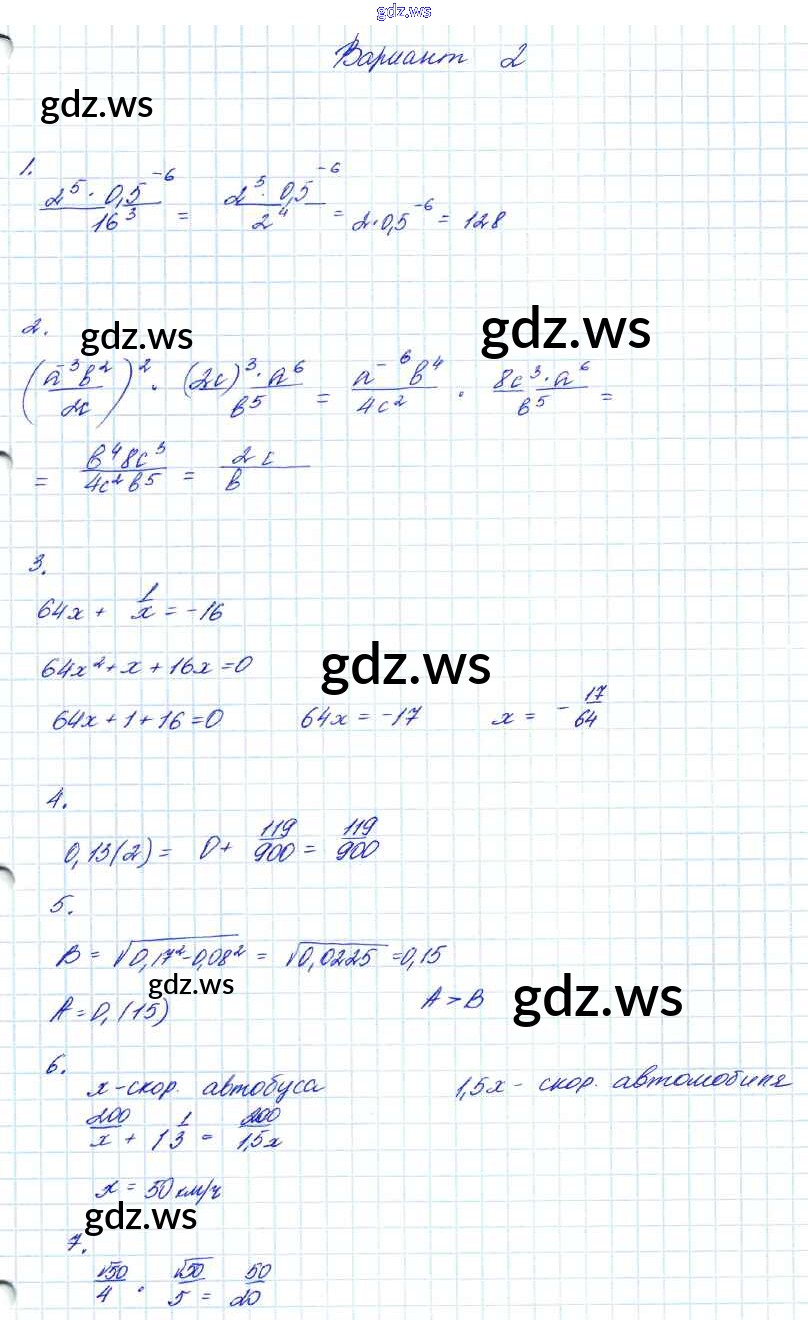 gdz.ws
Вариант 2
gdz.ws
1.
2⁵ · 0,5⁻⁶ / 16³ = 2⁵ · 0,5⁻⁶ / 2⁴ = 2·0,5⁻⁶ = 128
2. gdz.ws gdz.ws
(a⁻³b² / 2c)² · (2c)³ · a⁶ / b⁵ = a⁻⁶b⁴ / 4c² · 8c³ · a⁶ / b⁵ =
= b⁴8c³ / 4c²b⁵ = 2c / b
3.
64x + 1/x = -16
64x² + x + 16x = 0 gdz.ws
64x + 1 + 16 = 0 64x = -17 x = -17/64
4.
0,13(2) = 0 + 119/900 = 119/900
5.
B = √0,17² - 0,08² = √0,0225 = 0,15
gdz.ws gdz.ws
A = 0,(15) A > B
6.
x - скор. автобуса 1,5x - скор. автомобиля
200/x + 1 1/3 = 200/1,5x
x = 50 км/ч
gdz.ws
7.
√50/4 · √50/5 = 50/20